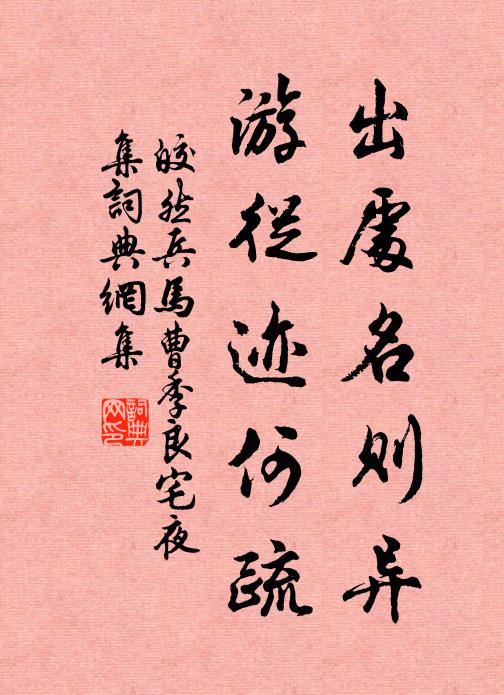 出處名则异
游從迹何疏
皎然兵馬曹季良宅夜
集詞典網集
詞典
网印